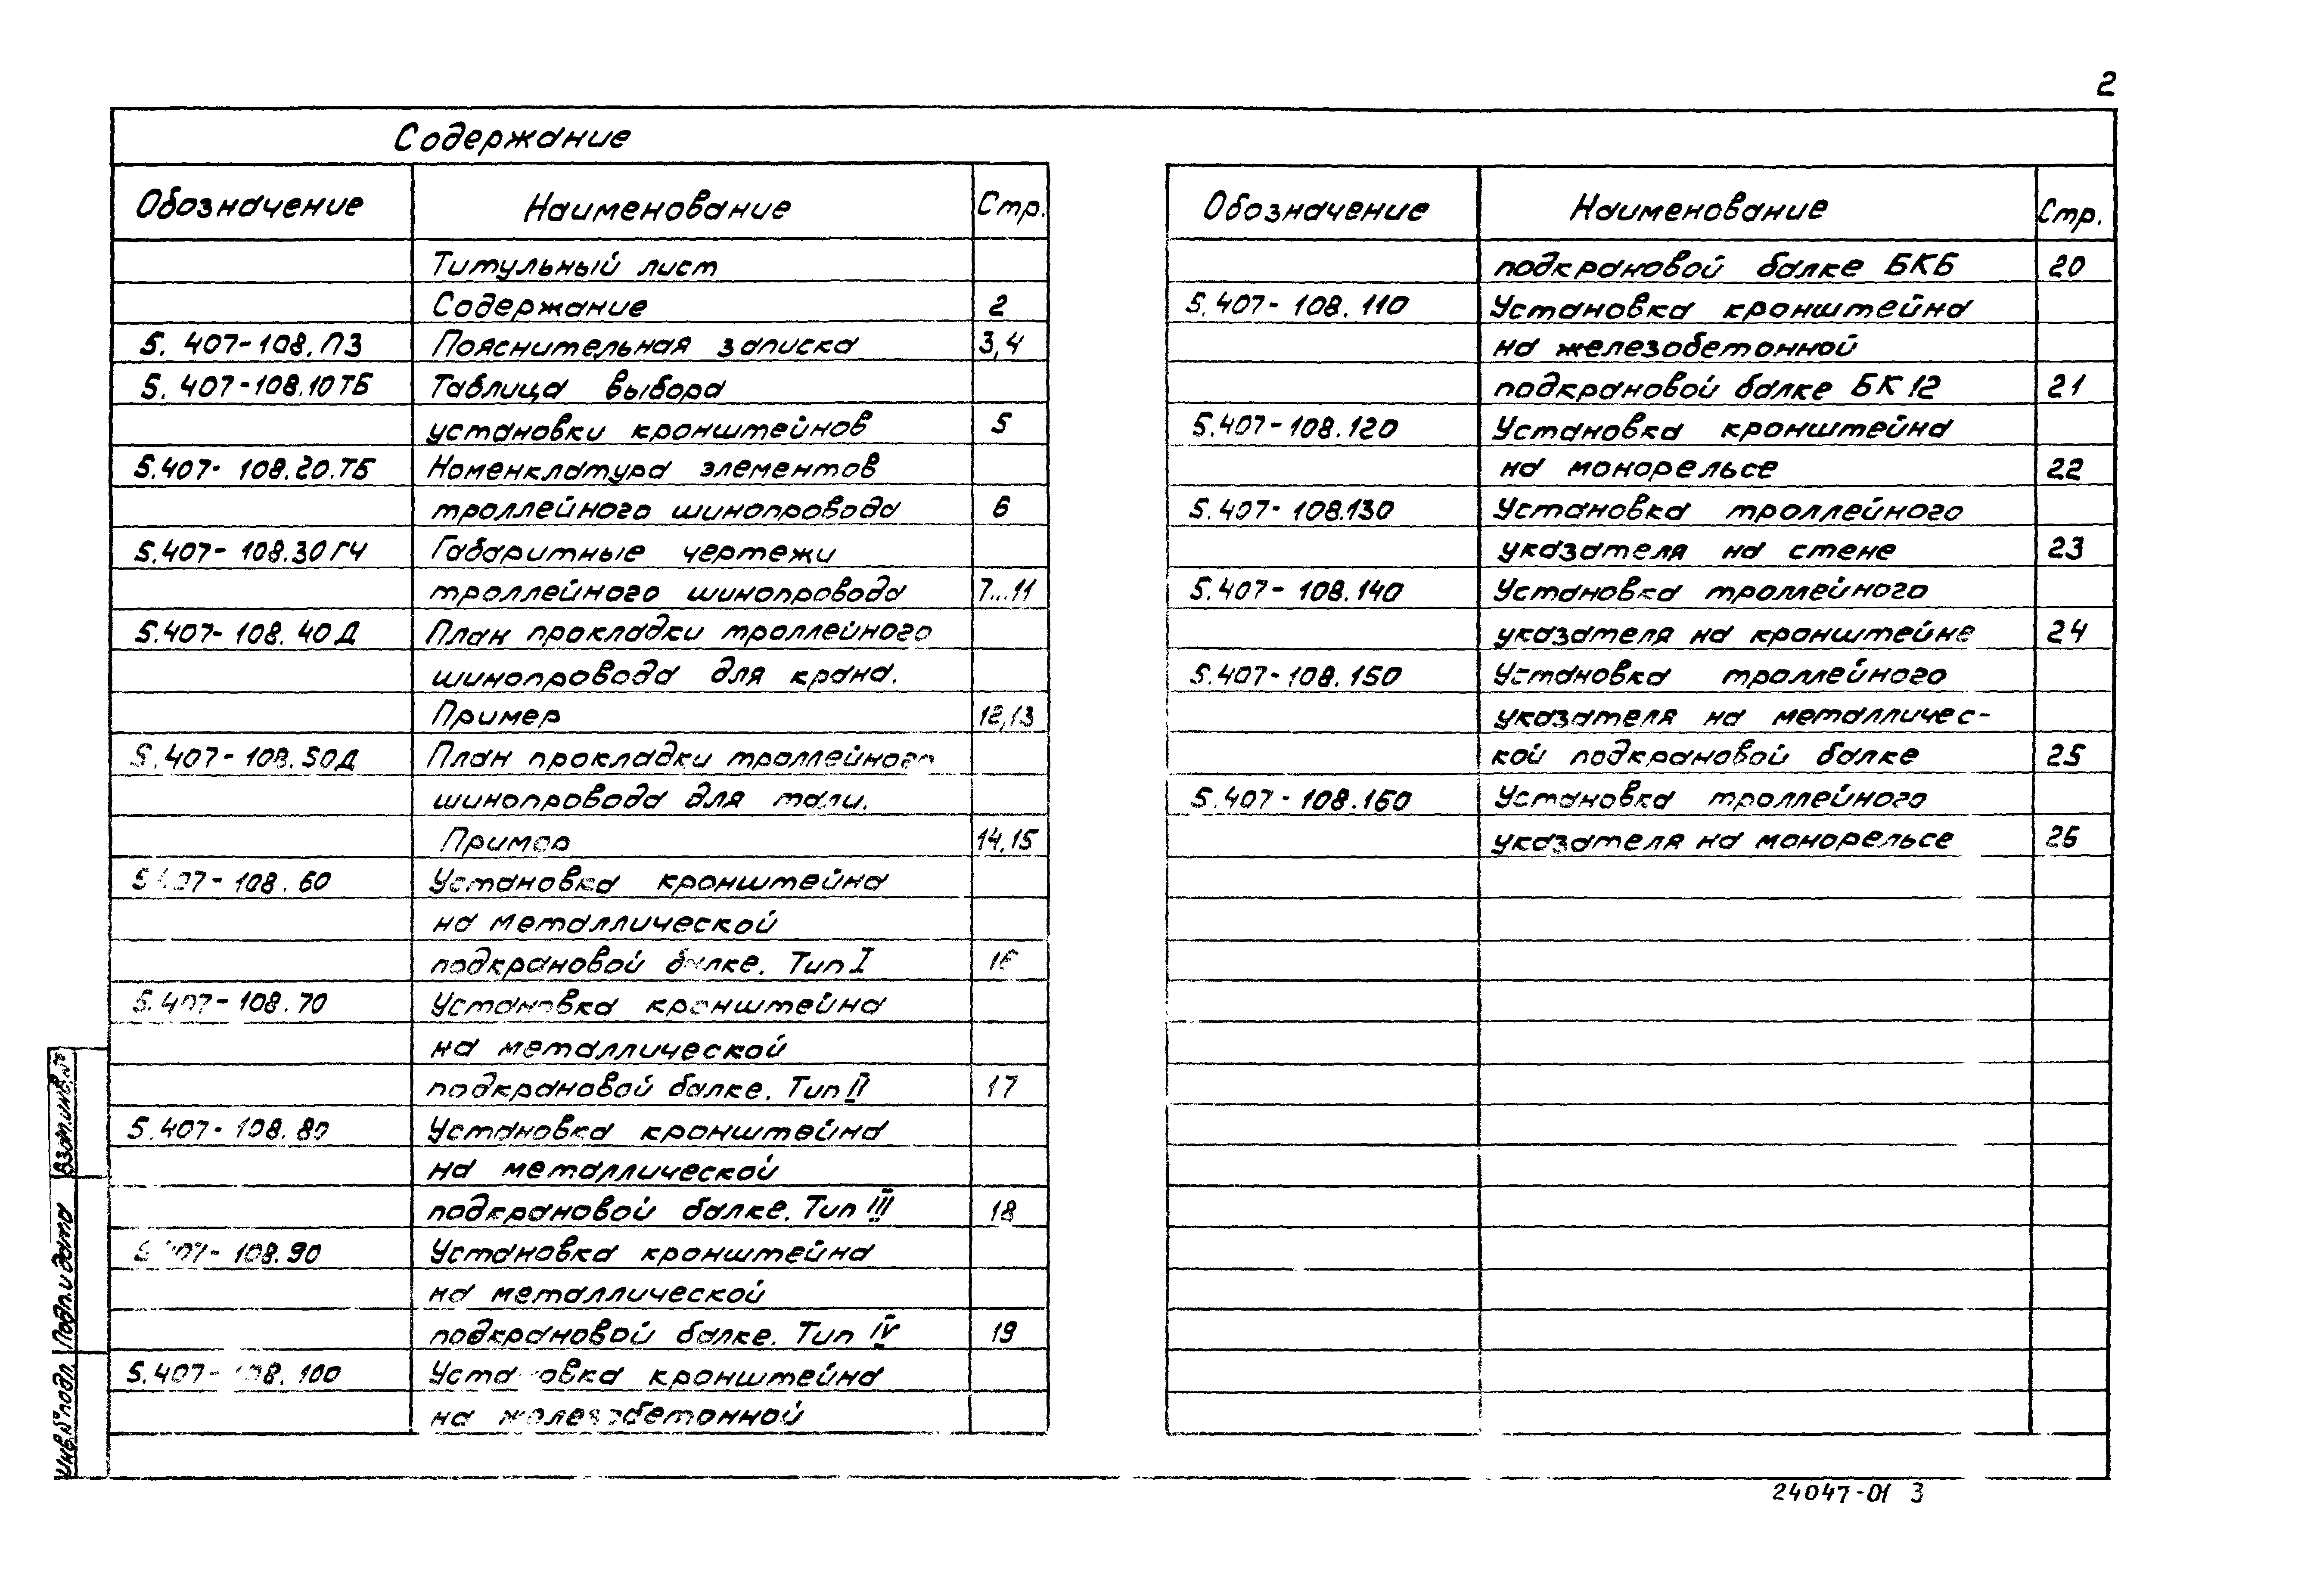 2
Содержание
Обозначение Наименование Стр.
Титульный лист
Содержание 2
5.407-108.ПЗ Пояснительная записка 3,4
5.407-108.10ТБ Таблица выбора
установки кронштейнов 5
5.407-108.20.ТБ Номенклатура элементов
троллейного шинопровода 6
5.407-108.30ГЧ Габаритные чертежи
троллейного шинопровода 7...11
5.407-108.40Д План прокладки троллейного
шинопровода для крана.
Пример 12,13
5.407-108.50Д План прокладки троллейного
шинопровода для тали.
Пример 14,15
5.407-108.60 Установка кронштейна
на металлической
подкрановой балке. Тип I 16
5.407-108.70 Установка кронштейна
на металлической
подкрановой балке. Тип II 17
5.407-108.80 Установка кронштейна
на металлической
подкрановой балке. Тип III 18
5.407-108.90 Установка кронштейна
на металлической
подкрановой балке. Тип IV 19
5.407-108.100 Установка кронштейна
на железобетонной
Обозначение Наименование Стр.
подкрановой балке БК6 20
5.407-108.110 Установка кронштейна
на железобетонной
подкрановой балке БК12 21
5.407-108.120 Установка кронштейна
на монорельсе 22
5.407-108.130 Установка троллейного
указателя на стене 23
5.407-108.140 Установка троллейного
указателя на кронштейне 24
5.407-108.150 Установка троллейного
указателя на металличес-
кой подкрановой балке 25
5.407-108.160 Установка троллейного
указателя на монорельсе 26
Взам.инв.№
Подп.и дата
Инв.№подл.
24047-01 3